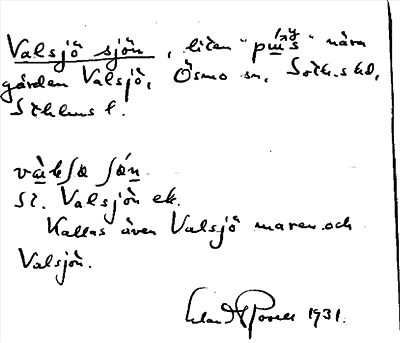 Valsjö sjön, liten "pu̲s" nära
gården Valsjö, Ösmo sn, Soth.s hd,
Sthlms l.
va̲lʃø ʃø̲n
Sr. Valsjön ek.
Kallas även Valsjö maren och
Valsjön.
1931.